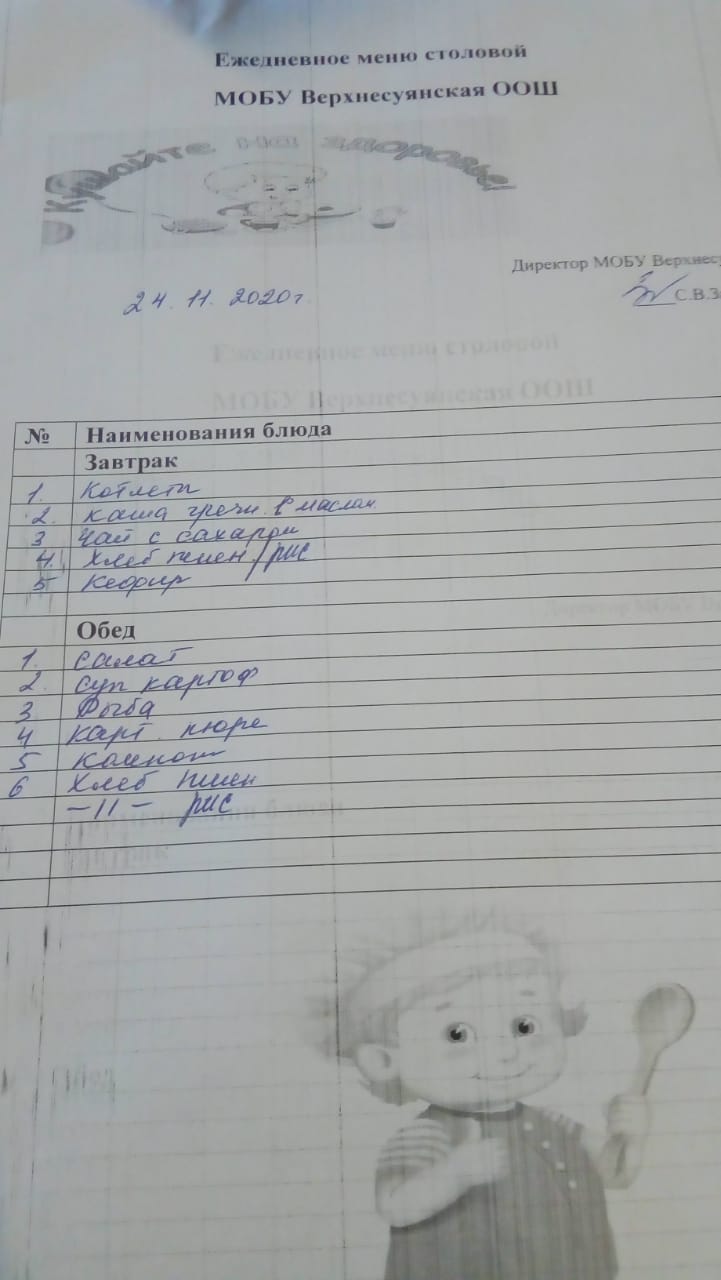 Ежедневное меню столовой
МОБУ Верхнесуянская ООШ
Кушайте на здоровье!
Директор МОБУ Верхнесу
С.В.З
24.11.2020г.
Ежедневное меню столовой
МОБУ Верхнесуянская ООШ
№ Наименования блюда
Завтрак
1. Котлета
2. каша гречн. с маслом
3 Чай с сахаром
4. Хлеб пшен/рис
5 Кефир
Обед
1. салат
2. суп картоф
3 Рыба
4 карт. пюре
5 Компот
6 Хлеб пшен
-11- рис
Наименования блюда
Завтрак
Обед